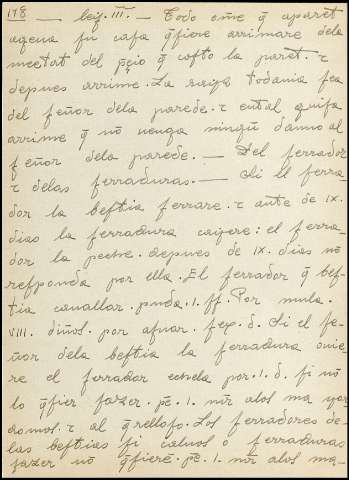 118 — leij. III. — Todo om̃e q̃ aparet
agena fu cafa q̃fiere arrimare dela
meetat del p̃çio q̃ cofto la paret. τ
depues arrime. La raiga todauia fea
del feñor dela parede. τ en tal guifa
arrime q̃ nõ uenga ningũ danno al
feñor dela parede. — Del ferrador
τ delas ferraduras. — Si el ferra-
dor la beftia ferrare. τ ante de IX.
dias la ferradura caiere: el ferra-
dor la peche. depues de IX. dias nõ
refponda por ella. El ferrador q̃ bef-
tia cauallar. prenda. I. ff. Por mula.
VIII. diños. por afnar. fex. d. Si el fe-
ñor dela beftia la ferradura ouie-
re el ferrador echela por. I. d. fi nõ
lo q̃fier fazer. pc̃. I. mr̃ alos ma yor-
domos. τ al q̃rellofo. Los ferradores de-
las beftias fi clauos o ferraduras
fazer nõ q̃fierẽ. pc̃. I. mr̃ alos ma-